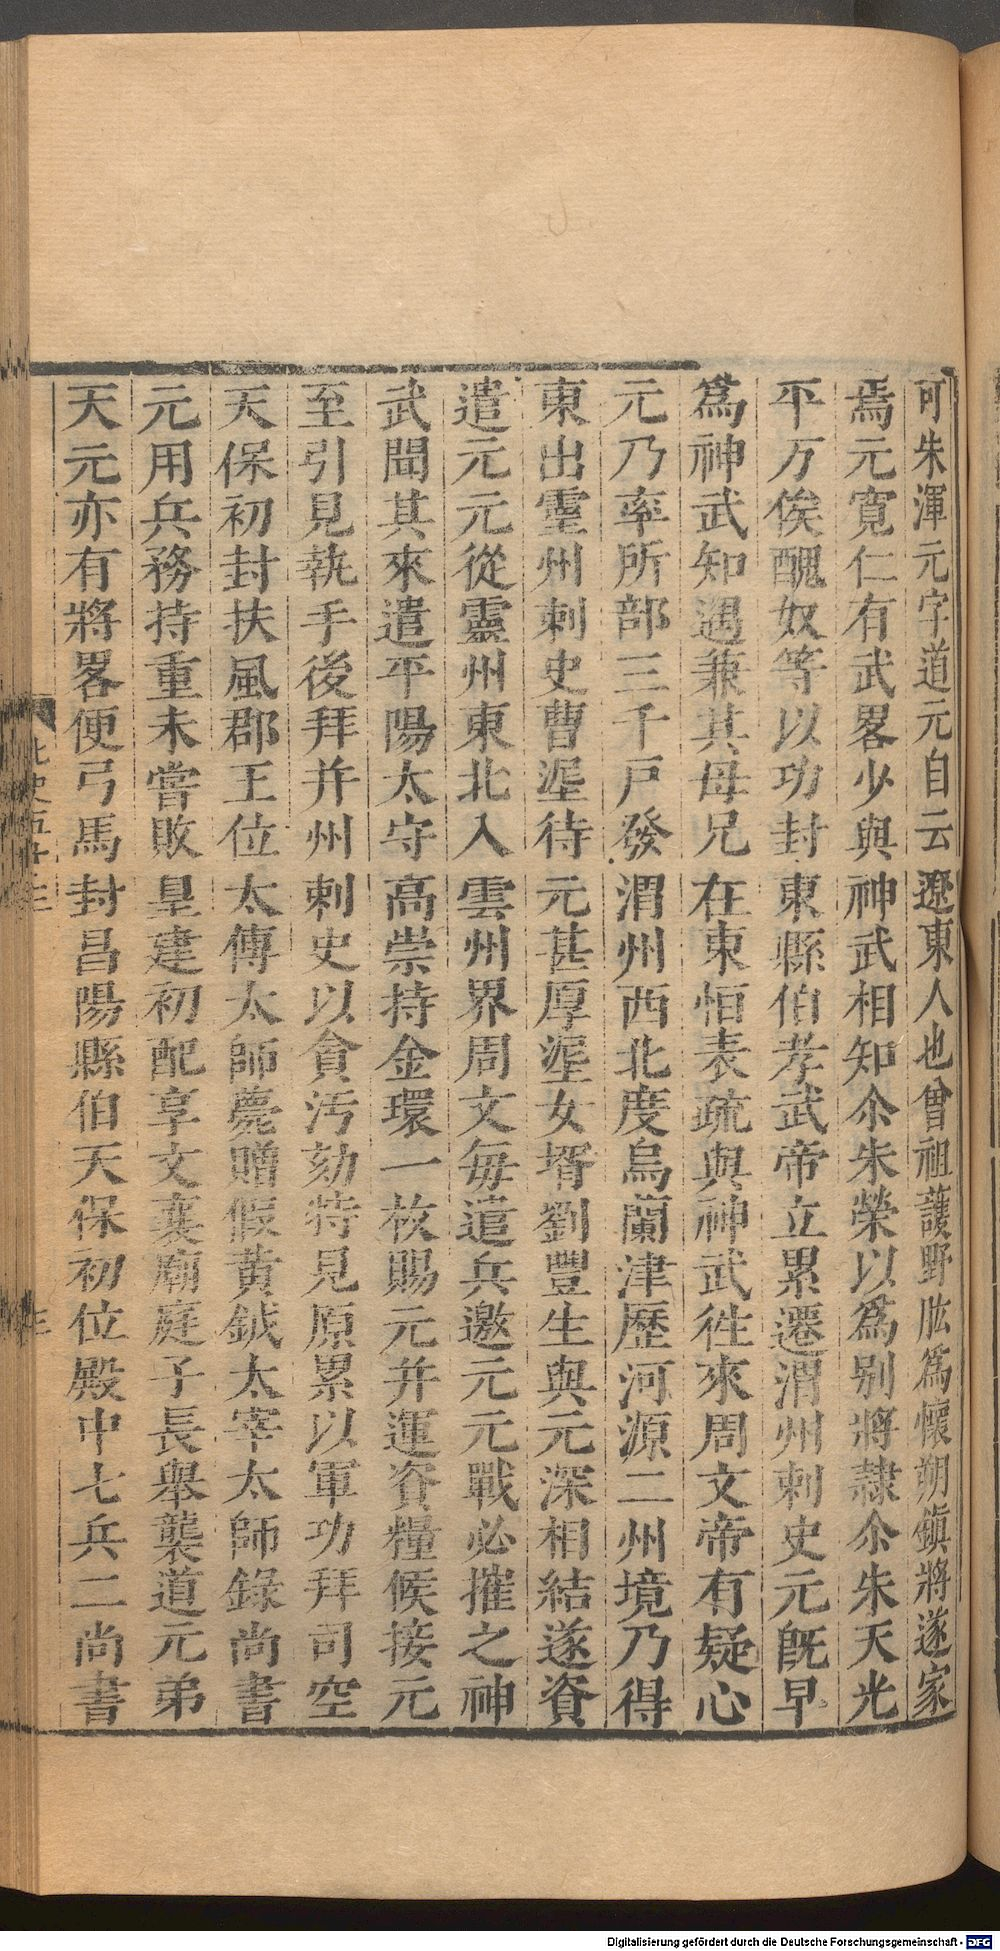 可朱渾元字道元自云遼東人也曾祖護野肱爲懷朔鎮將遂家
焉元寬仁有武畧少與神武相知尒朱榮以爲別將隷尒朱天光
平万俟醜奴等以功封東縣伯孝武帝立累遷渭州刺史元旣早
爲神武知遇兼其母兄在東恒表疏與神武徃來周文帝有疑心
元乃率所部三千戸發渭州西北度烏蘭津歷河源二州境乃得
東出靈州刺史曹埿待元甚厚埿女壻劉豐生與元深相結遂資
遣元元從靈州東北入雲州界周文每遣兵邀元元戰必摧之神
武聞其來遣平陽太守高崇持金環一枚賜元并運資糧候接元
至引見執手後拜并州刺史以貪污劾特見原累以軍功拜司空
天保初封扶風郡王位太傅太師薨贈假黃鉞太宰太師錄尚書
元用兵務持重未嘗敗皇建初配享文襄廟庭子長舉襲道元弟
天元亦有將畧便弓馬封昌陽縣伯天保初位殿中七兵二尚書
北史五十三
Digitalisierung gefördert durch die Deutsche Forschungsgemeinschaft - DFG